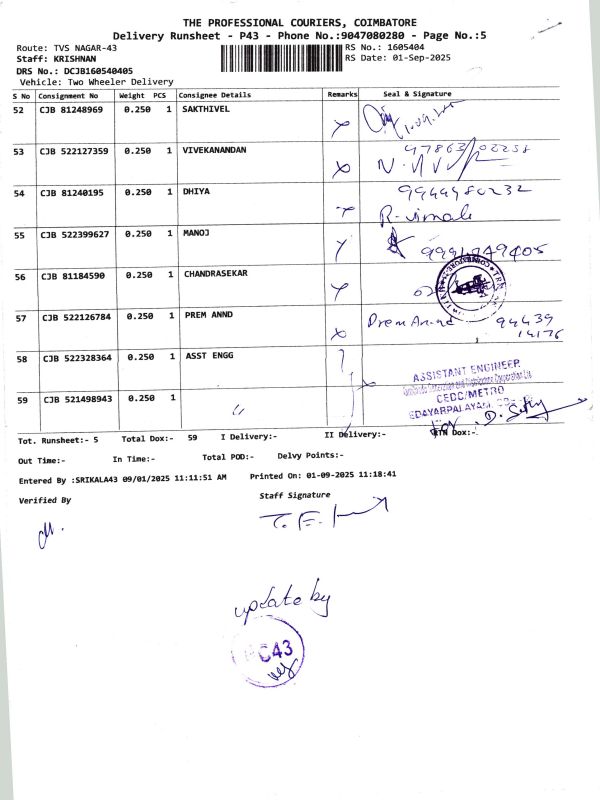 THE PROFESSIONAL COURIERS, COIMBATORE
Delivery Runsheet - P43 - Phone No.:9047080280 - Page No.:5
Route: TVS NAGAR-43 RS No.: 1605404
Staff: KRISHNAN RS Date: 01-Sep-2025
DRS No.: DCJB160540405
Vehicle: Two Wheeler Delivery
S No Consignment No Weight PCS Consignee Details Remarks Seal & Signature
52 CJB 81248969 0.250 1 SAKTHIVEL
53 CJB 522127359 0.250 1 VIVEKANANDAN
54 CJB 81240195 0.250 1 DHIYA 9944980232
R-vimala
55 CJB 522399627 0.250 1 MANOJ
56 CJB 81184590 0.250 1 CHANDRASEKAR
57 CJB 522126784 0.250 1 PREM ANND Prem Anand 94439
14176
58 CJB 522328364 0.250 1 ASST ENGG
ASSISTANT ENGINEER
59 CJB 521498943 0.250 1 "
CEDC/METRO
EDAYARPALAYAM
Tot. Runsheet:- 5 Total Dox:- 59 I Delivery:- II Delivery:- RTN Dox:-
Out Time:- In Time:- Total POD:- Delvy Points:-
Entered By :SRIKALA43 09/01/2025 11:11:51 AM Printed On: 01-09-2025 11:18:41
Verified By Staff Signature
update by
PC43